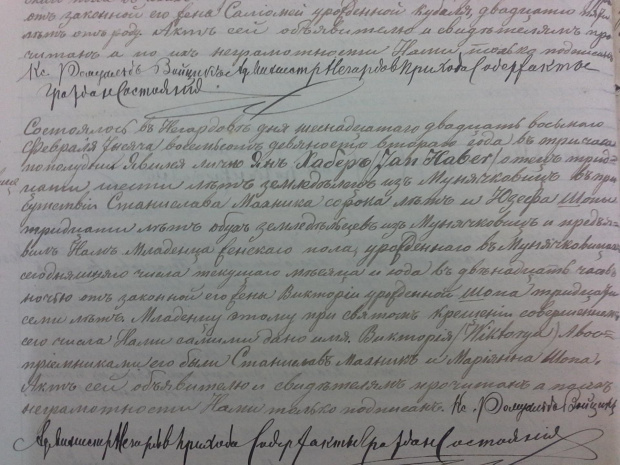 отъ законной его жены Саломеи урожденной Кубаля, двадцати три
лѣтъ отъ роду. Актъ сей объявителю и свидѣтелямъ про
читанъ а по ихъ неграмотности Нами только подписанъ
Кс. Ромуальдъ Войцикъ Администр Негардовъ Прихода Содер Акты
Граждан Состоянія.
Состоялось въ Негардовѣ дня шестнадцатаго двадцать восьмаго
Февраля тысяча восемьсотъ девяносто втораго года въ три часа
пополудни. Явился лично Янъ Хаберъ (Jan Haber) отецъ трид-
цати шести лѣтъ земледѣлецъ изъ Мунячковицъ въ при
сутствіи Станислава Мазника сорока лѣтъ и Юзефа Шопы
тридцати лѣтъ обухъ земледѣльцевъ изъ Мунячковицъ и предъя-
вилъ Намъ Младенца женскаго пола, урожденнаго въ Мунячковицахъ
сегодняшняго числа текущаго мѣсяца и года въ двѣнадцать часовъ
ночью отъ законной его жены Викторіи урожденной Шопа тридцати
семи лѣтъ Младенцу этому при святомъ крещеніи совершенномъ
сего числа Нами самими дано имя Викторія (Wiktorya) А вос-
пріемниками его были Станиславъ Мазникъ и Маріянна Шопа.
Актъ сей объявителю и свидѣтелямъ прочитанъ а по ихъ
неграмотности Нами только подписанъ. Кс. Ромуальдъ Войцикъ
Администр Негардовъ Прихода Содер Акты Граждан Состоянія